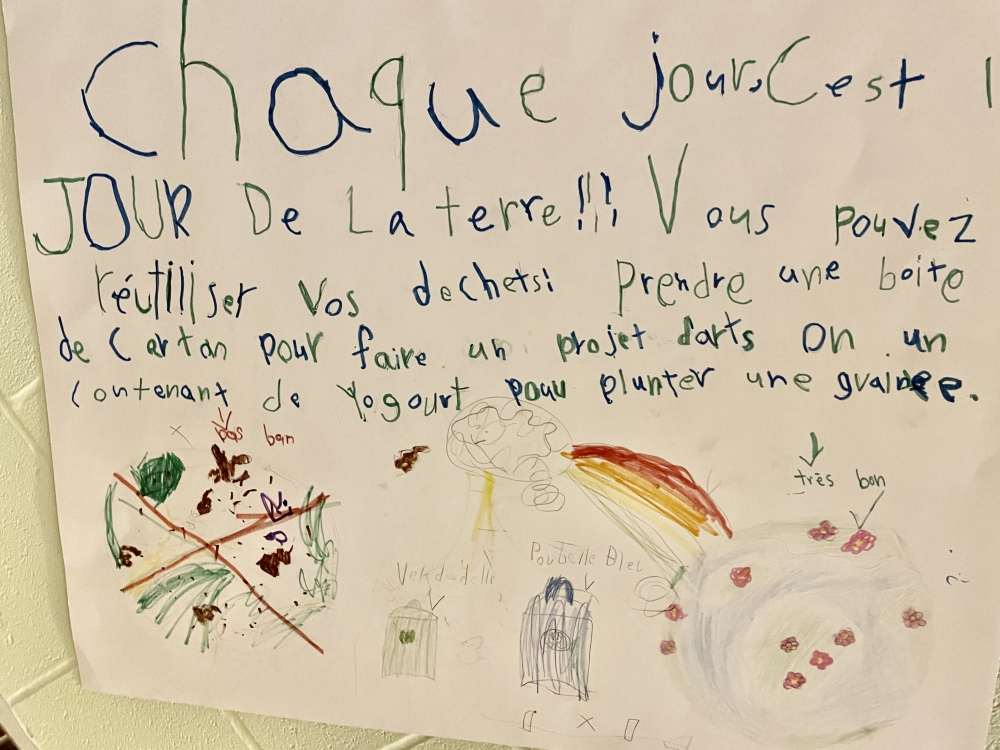 Chaque jour, C'est l
JOUR De La terre!!! Vous pouvez
réutiliser vos dechets: Prendre une boite
de Cartan pour faire un projet d'arts On un
contenant de Yogourt pouu plunter une
pas bon
très bon
Poubelle Bleu